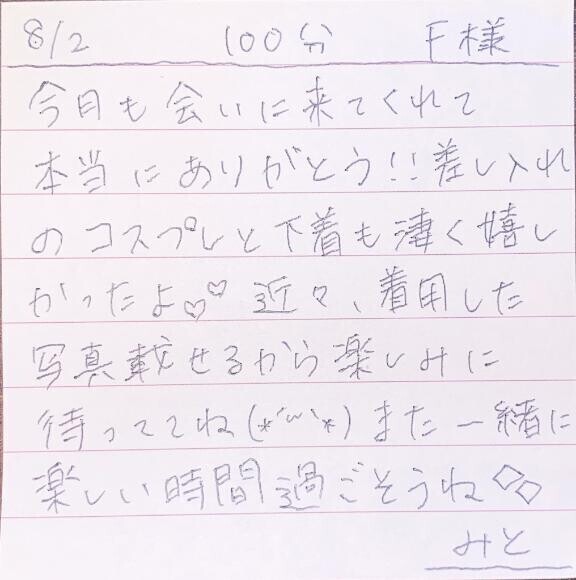 8/2 100分 F様
今日も会いに来てくれて
本当にありがとう!!差し入れ
のコスプレと下着も凄く嬉し
かったよ♡♡近々、着用した
写真載せるから楽しみに
待っててね(*´˘`*)また一緒に
楽しい時間過ごそうね◇◇
みと